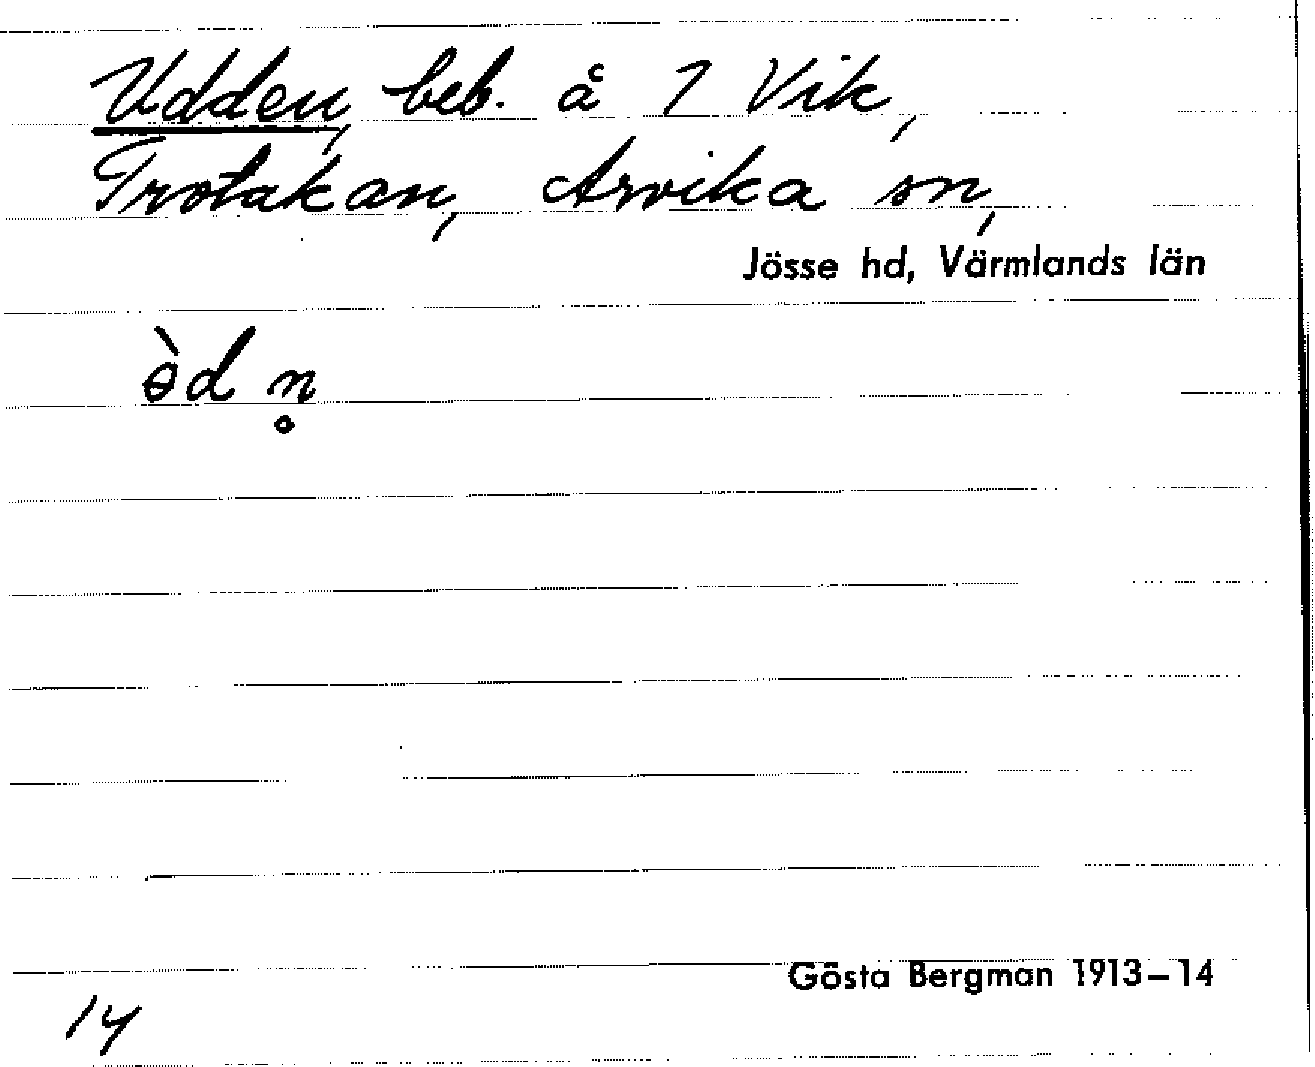 Udden, beb. å 7 Vik,
Trotakan, Arvika sn,
Jösse hd, Värmlands län
ɵ̀d n̥
Gösta Bergman 1913–14
14